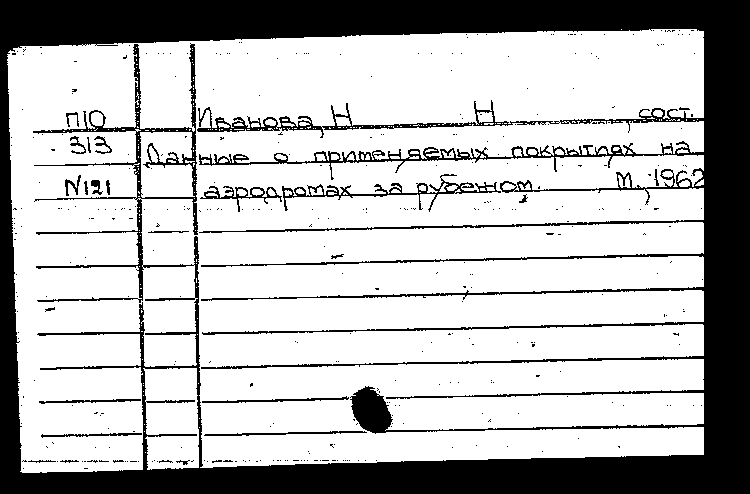 П10 Иванова, Н Н , сост.
313 Данные о применяемых покрытиях на
N121 аэродромах за рубежом. М., 1962